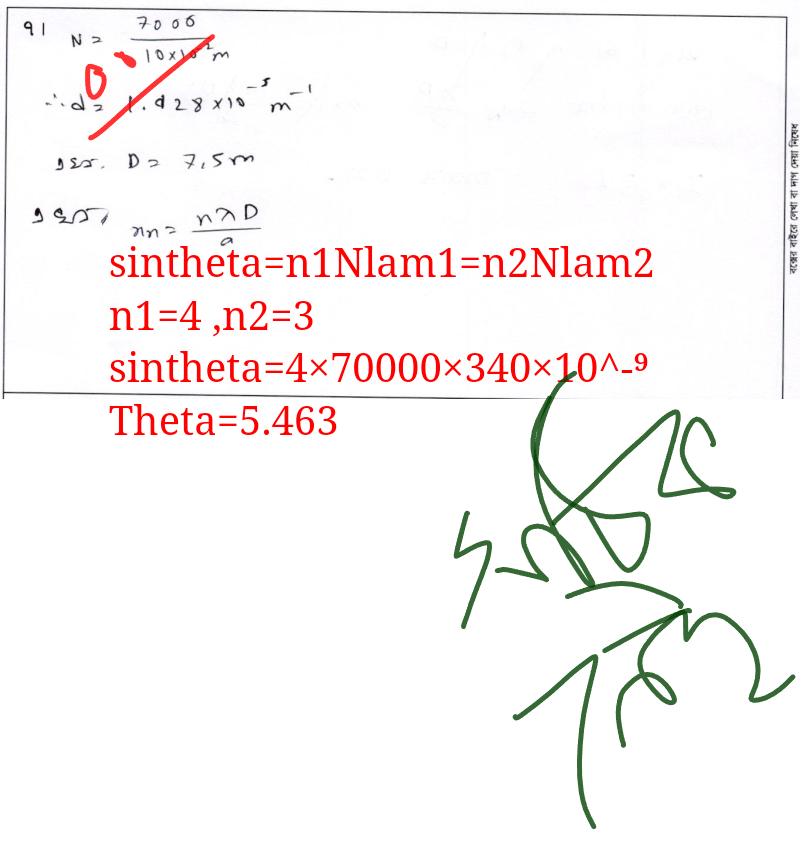 91 N = 7000 / 10×10⁻²m
0.
∴ d = 1.428×10⁻⁵ m⁻¹
D = 7.5m
xn = nλD / a
sintheta=n1Nlam1=n2Nlam2
n1=4 ,n2=3
sintheta=4×70000×340×10^-⁹
Theta=5.463
বক্সের বাইরে লেখা বা দাগ দেয়া নিষেধ